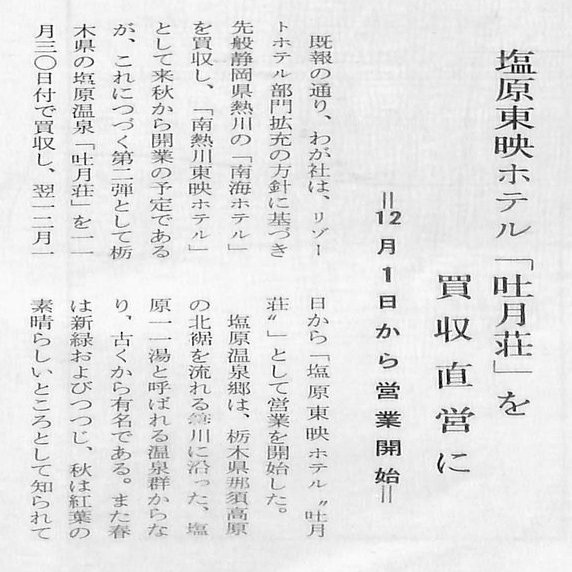 塩原東映ホテル「吐月荘」を
買収直営に
＝12月1日から営業開始＝
既報の通り、わが社は、リゾー
トホテル部門拡充の方針に基づき
先般静岡県熱川の「南海ホテル」
を買収し、「南熱川東映ホテル」
として来秋から開業の予定である
が、これにつづく第二弾として栃
木県の塩原温泉「吐月荘」を一一
月三〇日付で買収し、翌一二月一
日から「塩原東映ホテル〝吐月
荘〟」として営業を開始した。
塩原温泉郷は、栃木県那須高原
の北裾を流れる箒川に沿った、塩
原一一湯と呼ばれる温泉群からな
り、古くから有名である。また春
は新緑およびつつじ、秋は紅葉の
素晴らしいところとして知られて